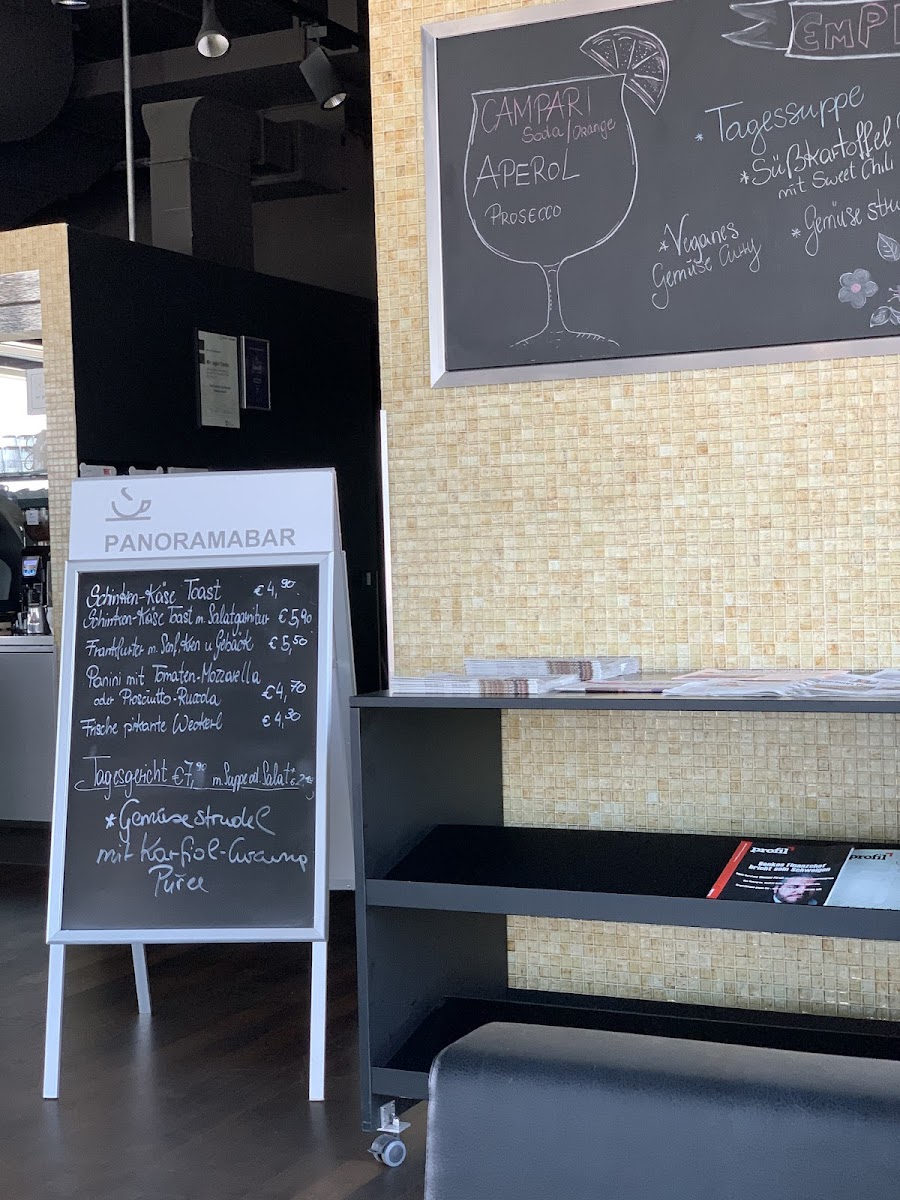 CAMPARI
Soda/Orange
APEROL
PROSECCO
EMP
* Tagessuppe
* Süßkartoffel
mit Sweet Chili
* Veganes
Gemüse Curry
* Gemüse stru
PANORAMABAR
Schinken-Käse Toast €4,90
Schinken-Käse Toast m. Salatgarnitur €5,90
Frankfurter m. Senf, Kren u Gebäck €5,50
Panini mit Tomaten-Mozzarella
oder Prosciutto-Rucola €4,70
Frische pikante Weckerl €4,30
Tagesgericht €7,90 m. Suppe od. Salat
* Gemüsestrudel
mit Karfiol-
Püree
profil
profil